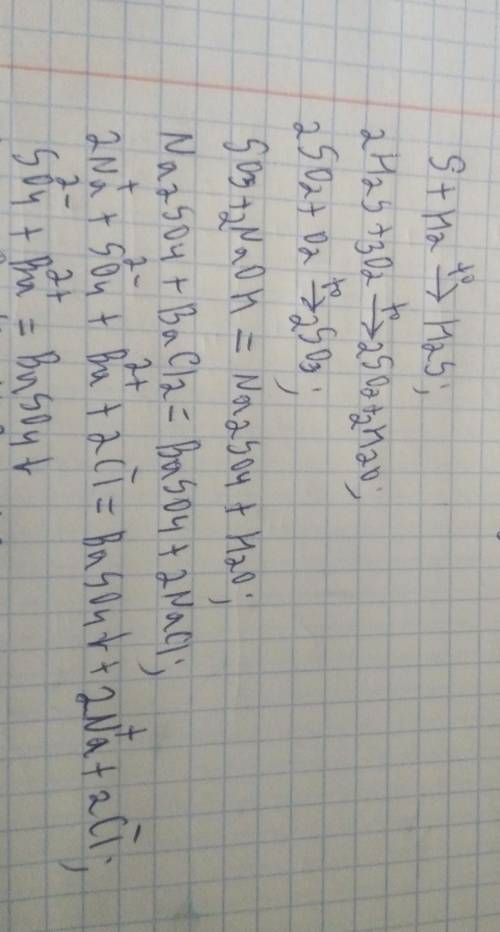 S + H2 t°→ H2S;
2H2S + 3O2 t°→ 2SO2 + 2H2O;
2SO2 + O2 t°→ 2SO3;
SO3 + 2NaOH = Na2SO4 + H2O;
Na2SO4 + BaCl2 = BaSO4 + 2NaCl;
2Na⁺ + SO4²⁻ + Ba²⁺ + 2Cl⁻ = BaSO4↓ + 2Na⁺ + 2Cl⁻;
SO4²⁻ + Ba²⁺ = BaSO4↓